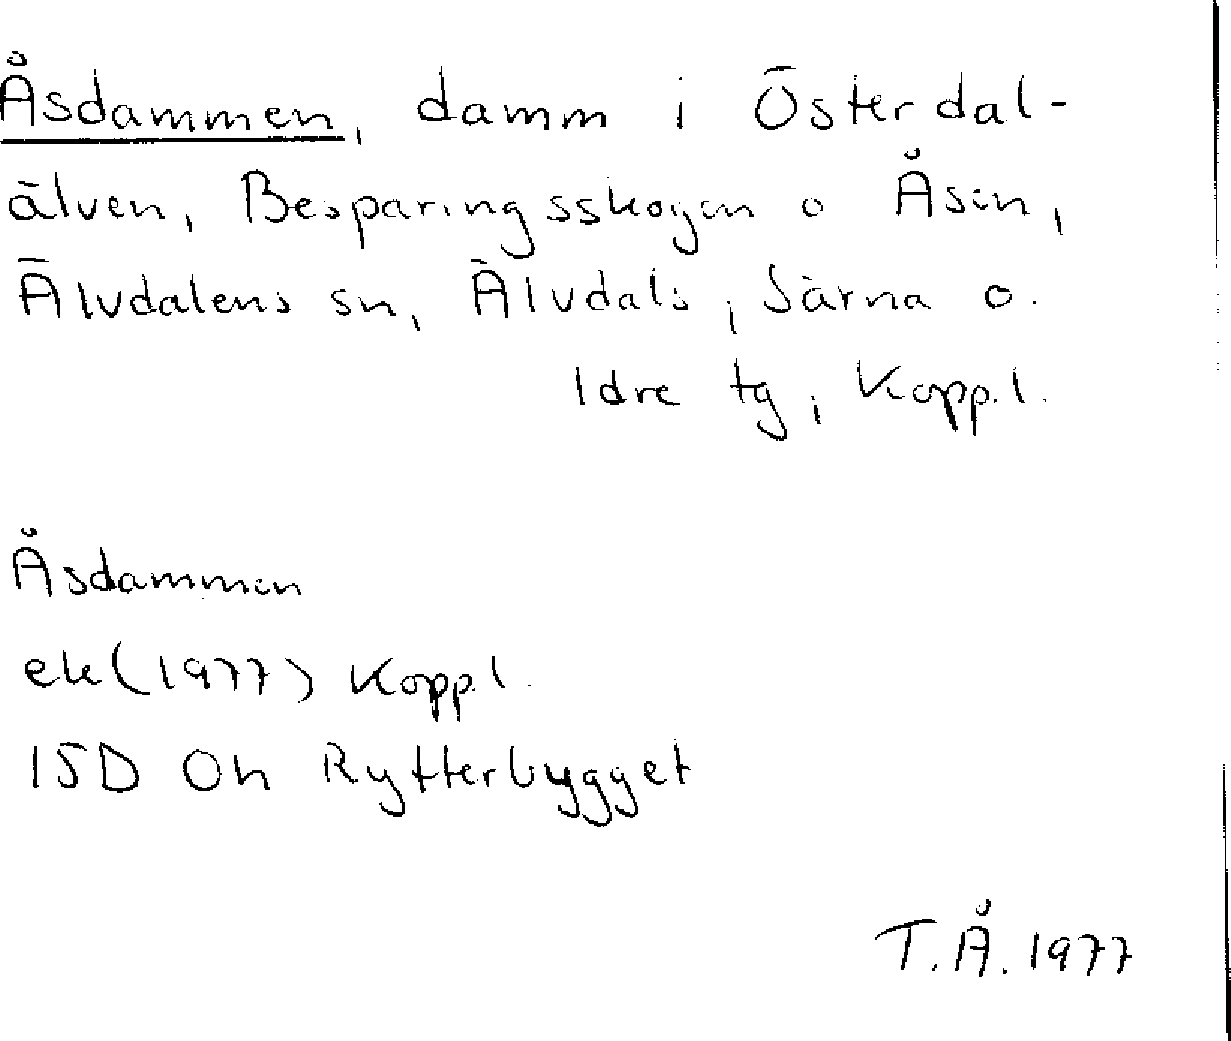 Åsdammen, damm i Österdal-
älven, Besparingsskogen o Åsen,
Älvdalens sn, Älvdals, Särna o.
Idre tg, Kopp.l.
Åsdammen
ek(1977) Kopp.l.
15D Oh Rytterbygget
T.Å. 1977